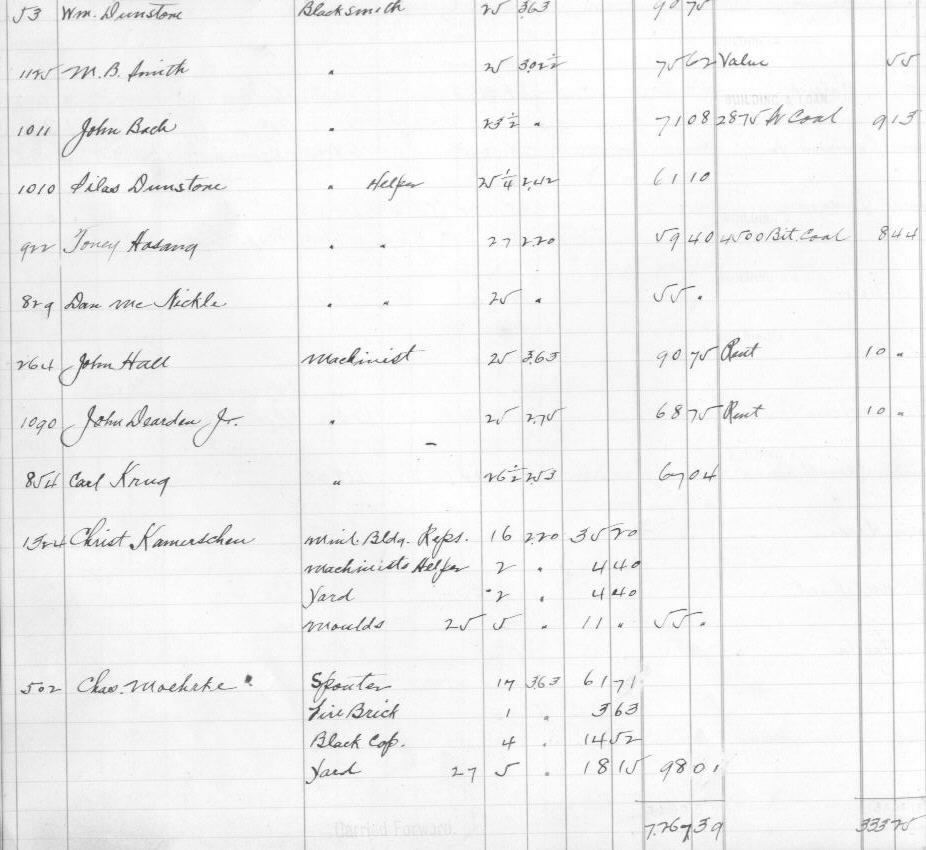 53 Wm. Dunstone Blacksmith 25 3.63 90 75
1125 M. B. Smith " 25 3.02½ 75 62 Value 55
1011 John Bach " 23½ " 71 08 2875 H Coal 9 13
1010 Silas Dunstone " Helper 25¼ 2.42 61 10
922 Toney Hosang " " 27 2.20 59 40 4500 Bit. Coal 8 44
829 Dan McNickle " " 25 " 55 "
264 John Hall Machinist 25 3.63 90 75 Rent 10 "
1090 John Dearden Jr. " 25 2.75 68 75 Rent 10 "
854 Carl Krug " 26½ 2.53 67 04
1324 Christ Kamerschen Minl. Bldg. Reps. 16 2.20 35 20
Machinists Helper 2 " 4 40
Yard 2 " 4 40
Moulds 25 5 " 11 " 55 "
502 Chas. Moehrke Spouter 17 3.63 61 71
Fire Brick 1 " 3 63
Black Cop. 4 " 14 52
Yard 27 5 " 18 15 98 01
Carried Forward 7.267 39 333 25